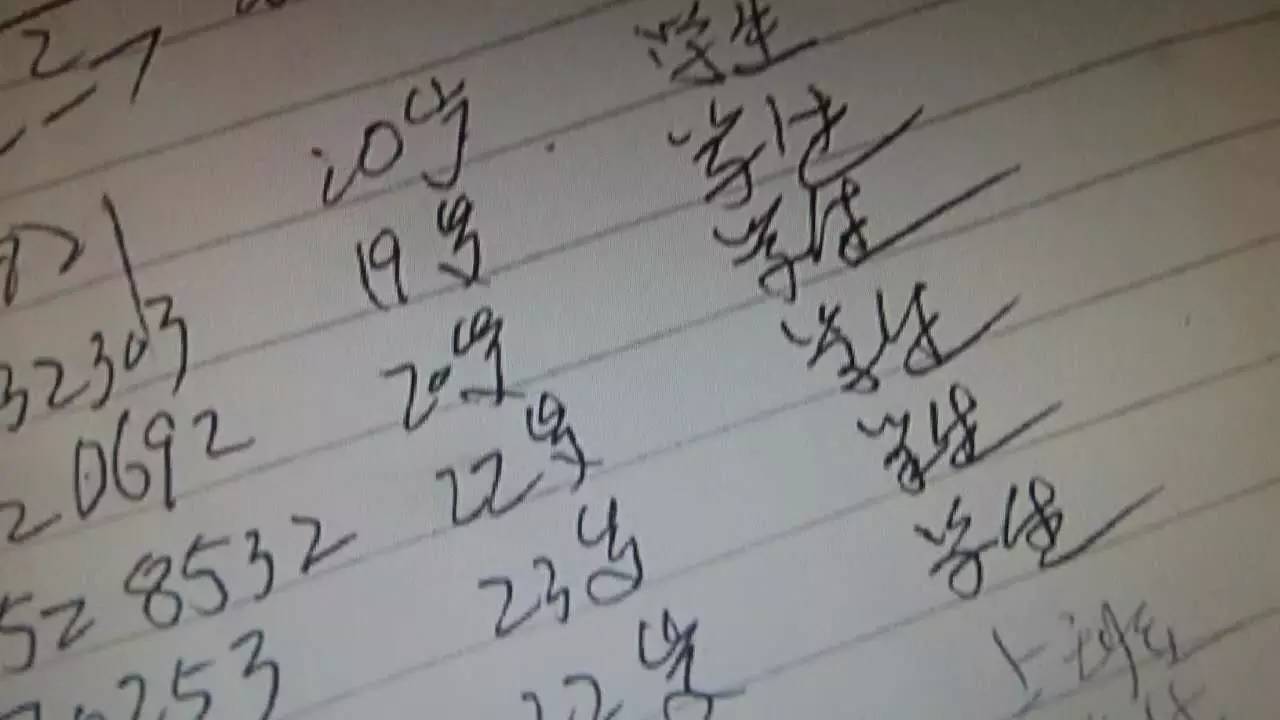 27 学生
10号 学生
19号 学生
32303 20号 学生
20692 22号 学生
528532 23号 学生
253 22号 上班